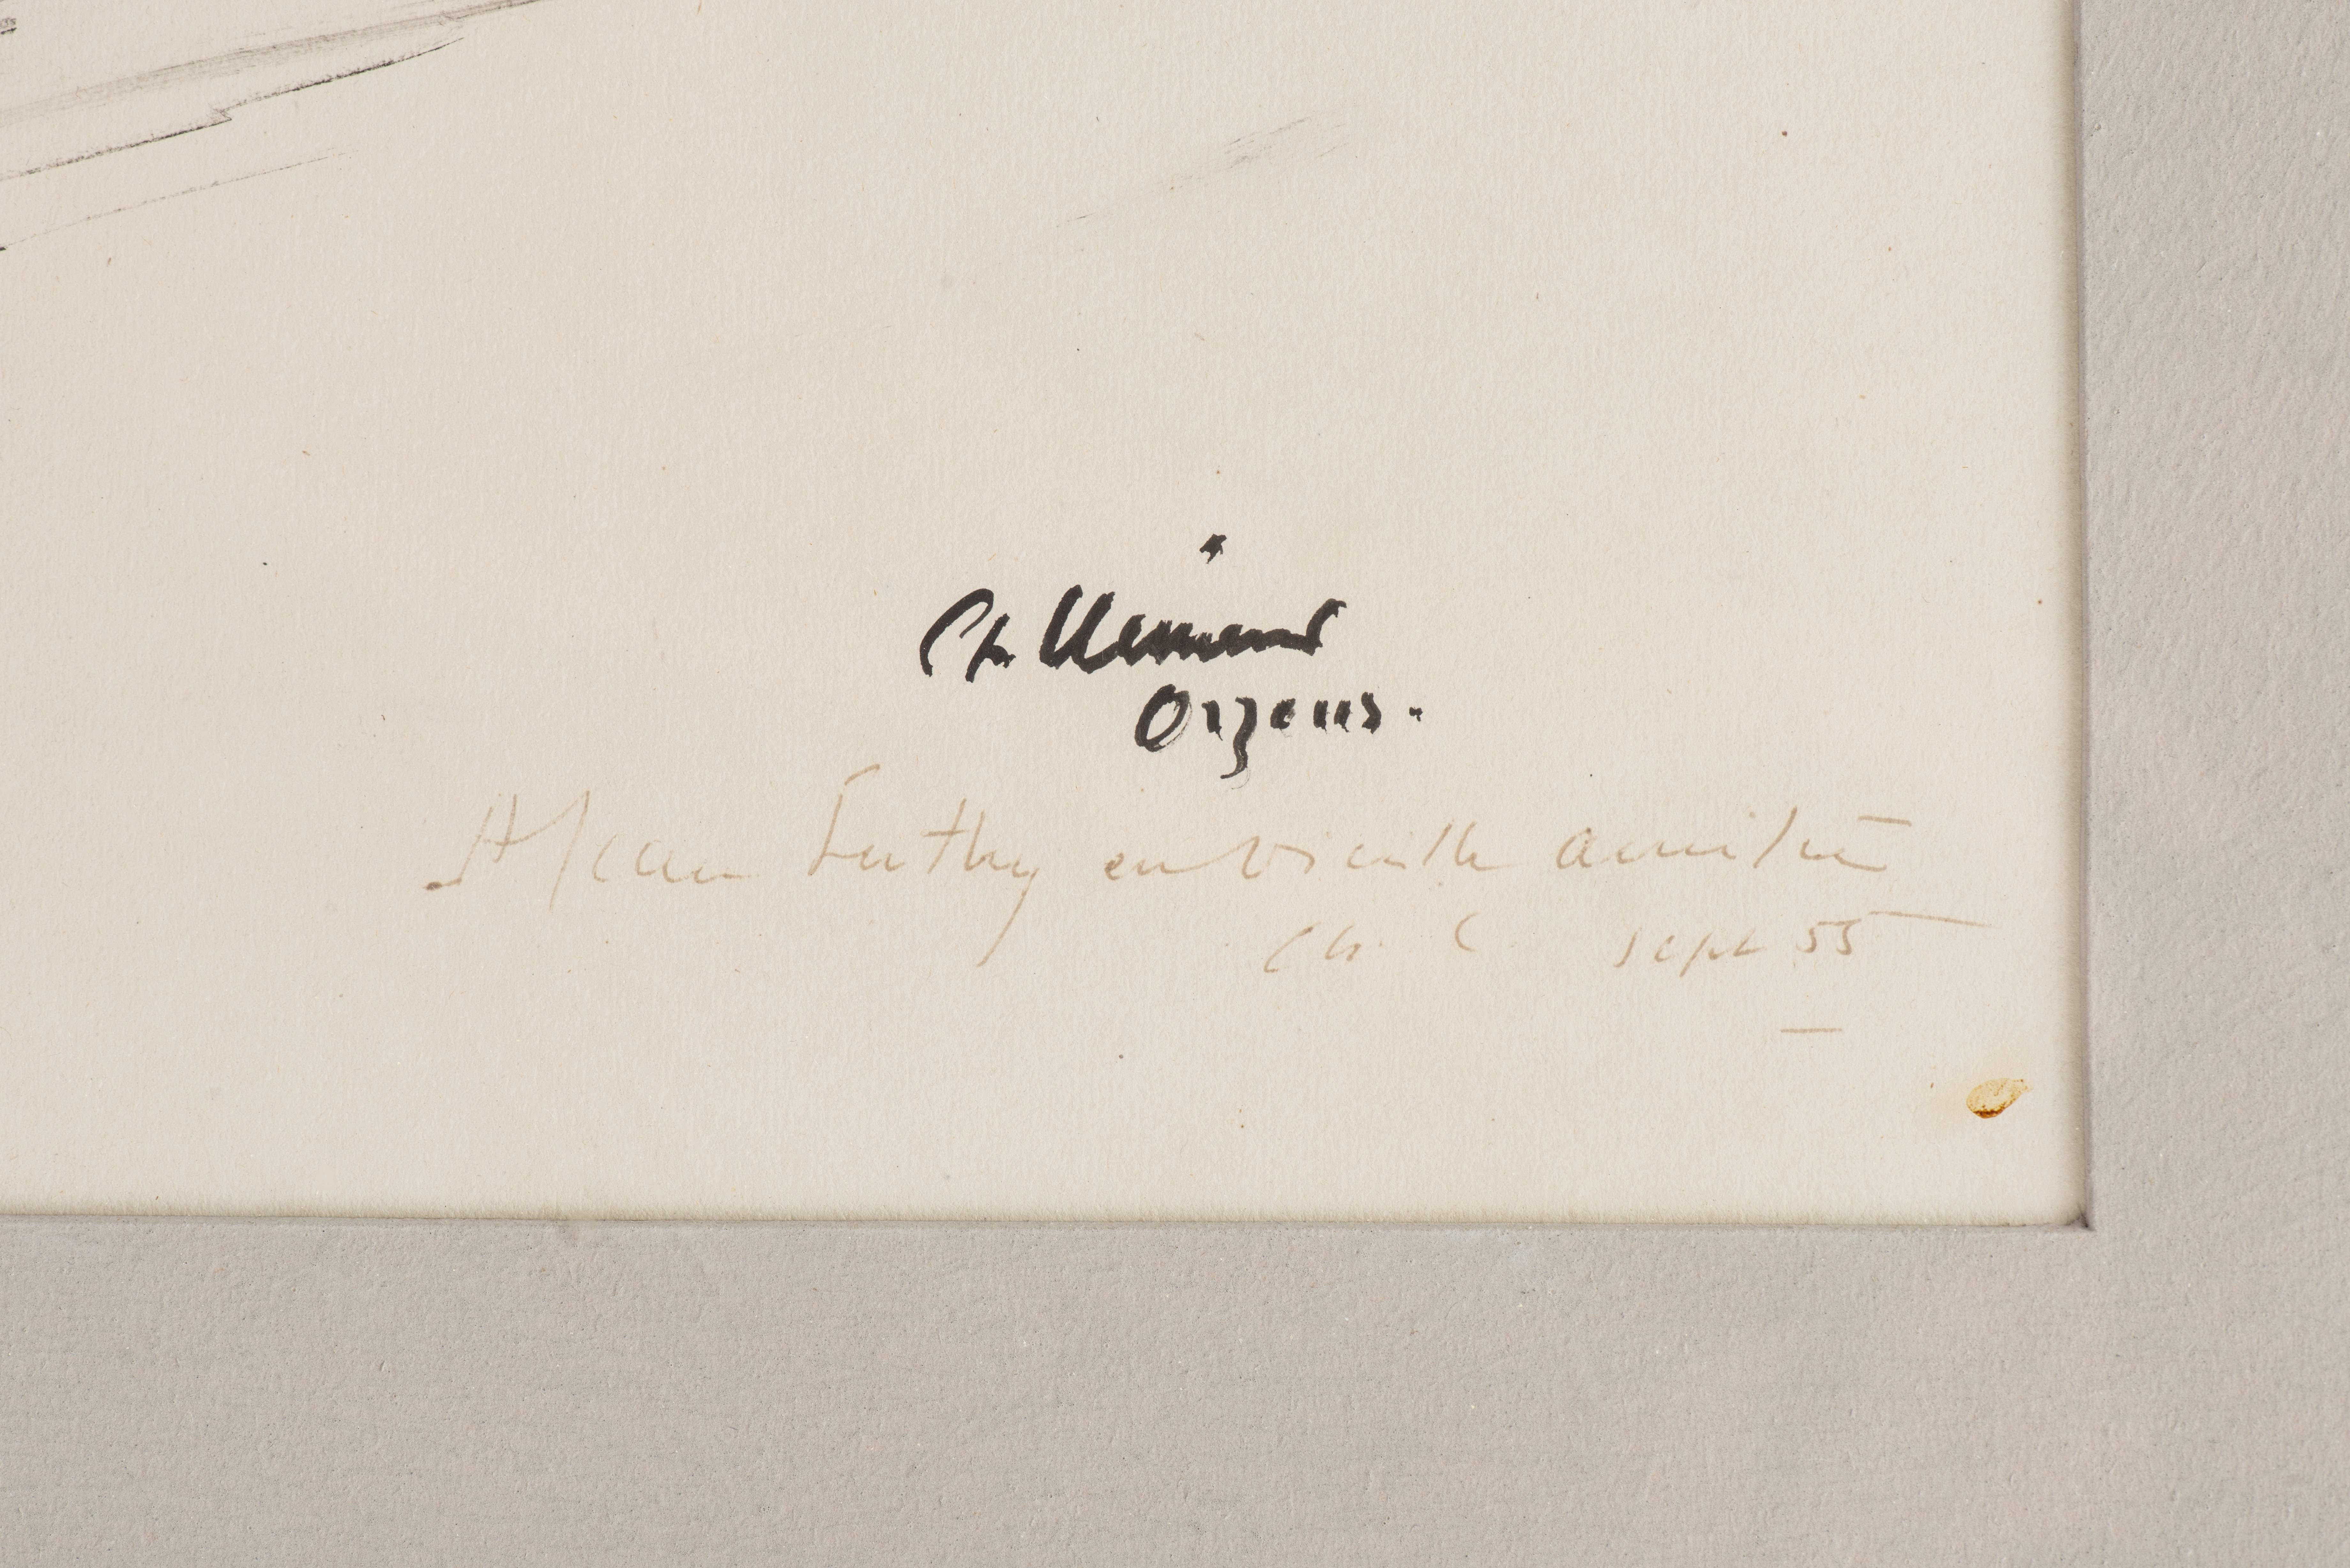 Ch. Clément
Orzens.
A Jean en vieille amitié
Ch. C. sept 55